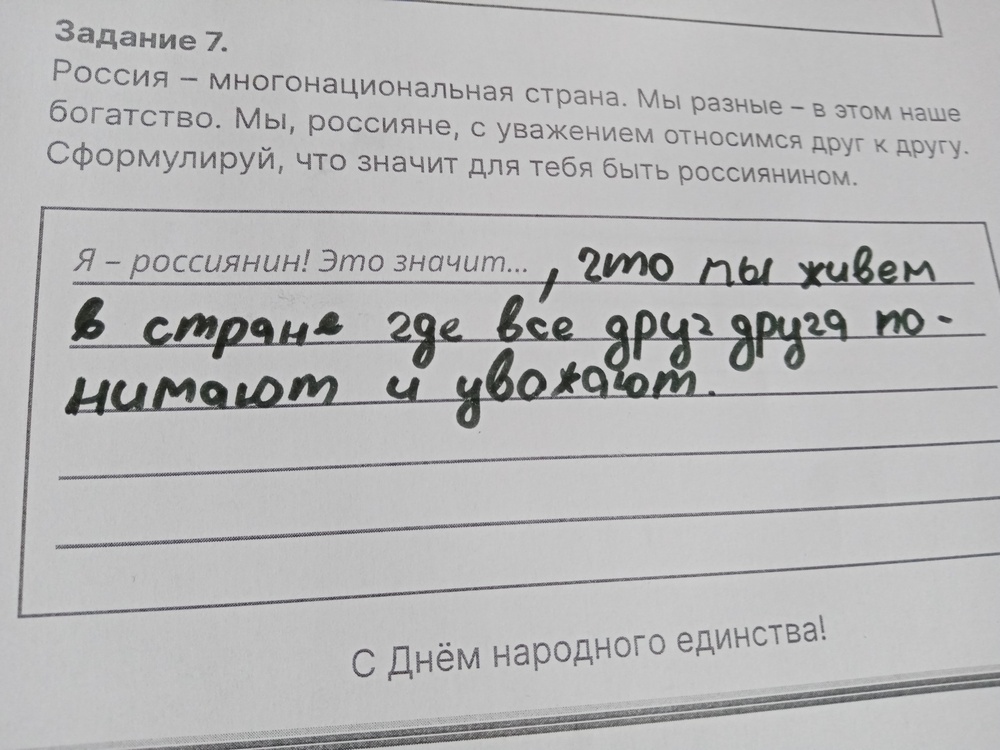 Задание 7.
Россия – многонациональная страна. Мы разные – в этом наше
богатство. Мы, россияне, с уважением относимся друг к другу.
Сформулируй, что значит для тебя быть россиянином.
Я – россиянин! Это значит... , что мы живем
в стране где все друг друга по-
нимают и увожают.
С Днём народного единства!